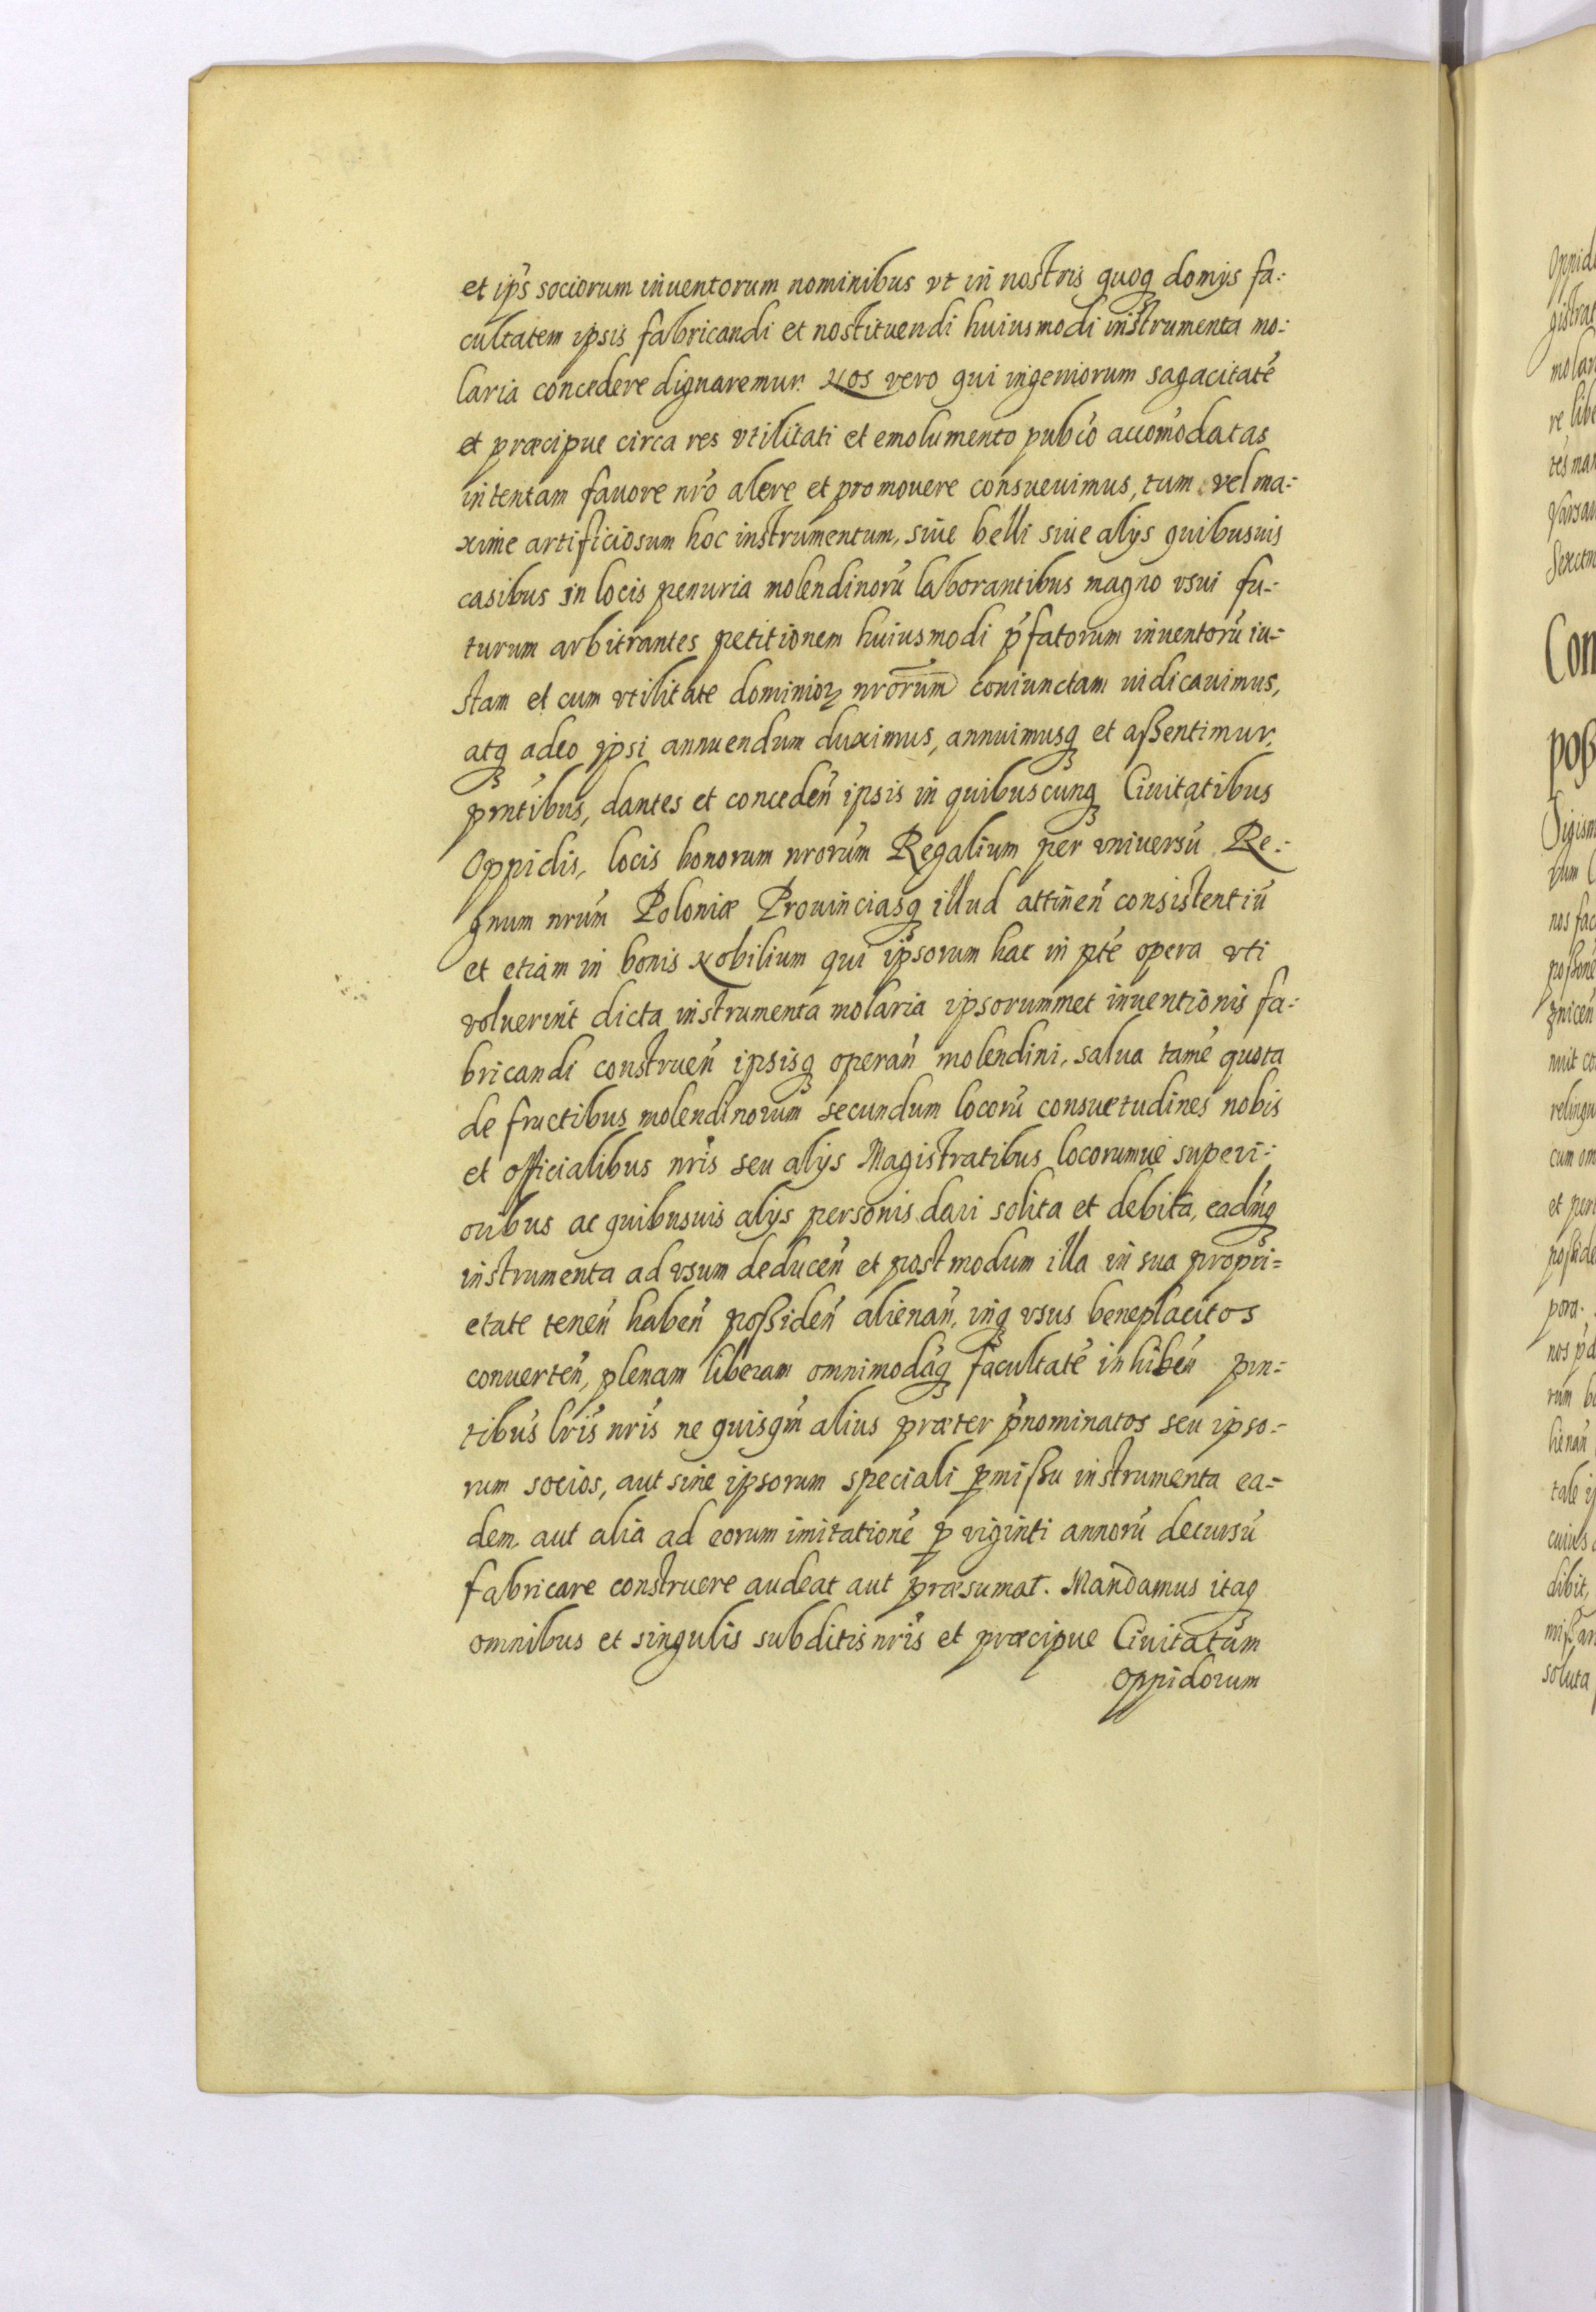 et ip̃s sociorum inuentorum nominibus vt in nostris quoq₃ domijs fa:
cultatem ipsis fabricandi et nostituendi huiusmodi instrumenta mo:
laria concedere dignaremur. Nos vero qui ingeniorum sagacitatẽ
et præcipue circa res vtilitati et emolumento pubc̃o accom̃odatas
intentam fauore nrõ alere et promouere consueuimus, tum vel ma:
xime artificiosum hoc instrumentum, siue belli siue alijs quibusuis
casibus in locis penuria molendinorũ laborantibus magno vsui fu:
turum arbitrantes petitionem huiusmodi p̃fatorum inuentorũ iu:
stam et cum vtilitate dominioꝝ nrõrum coniunctam iudicauimus,
atq₃ adeo ipsi annuendum duximus, annuimusq₃ et aßentimur.
pñtibus, dantes et conceden̄ ipsis in quibuscunq₃ Ciuitatibus
Oppidis, locis bonorum nrõrum Regalium per vniuersũ Re:
gnum nrũm Poloniæ Prouinciasq₃ illud attinen̄ consistentiũ
et etiam in bonis Nobilium qui ipsorum hac in ptẽ opera vti
voluerint dicta instrumenta molaria ipsorummet inuentionis fa:
bricandi construen̄ ipsisq₃ operan̄ molendini, salua tamẽ quota
de fructibus molendinorum secundum locorũ consuetudines nobis
et officialibus nrĩs seu alijs Magistratibus locorumue superi:
oribus ac quibusuis alijs personis dari solita et debita, eadm̃q₃
instrumenta ad vsum deducen̄ et postmodum illa in sua propri=
etate tenen̄ haben̄ poßiden̄ alienan̄, inq₃ vsus beneplacitos
conuerten̄, plenam liberam omnimodãq₃ facultatẽ inhiben̄ pñ=
tibus lrĩs nrĩs ne quisqm̃ alius præter p̃nominatos seu ipso=
rum socios, aut sine ipsorum speciali ꝑmißu instrumenta ea=
dem aut alia ad eorum imitationẽ ꝑ viginti annorũ decursũ
fabricare construere audeat aut præsumat. Mandamus itaq₃
omnibus et singulis subditis nrĩs et præcipue Ciuitatum
Oppidorum